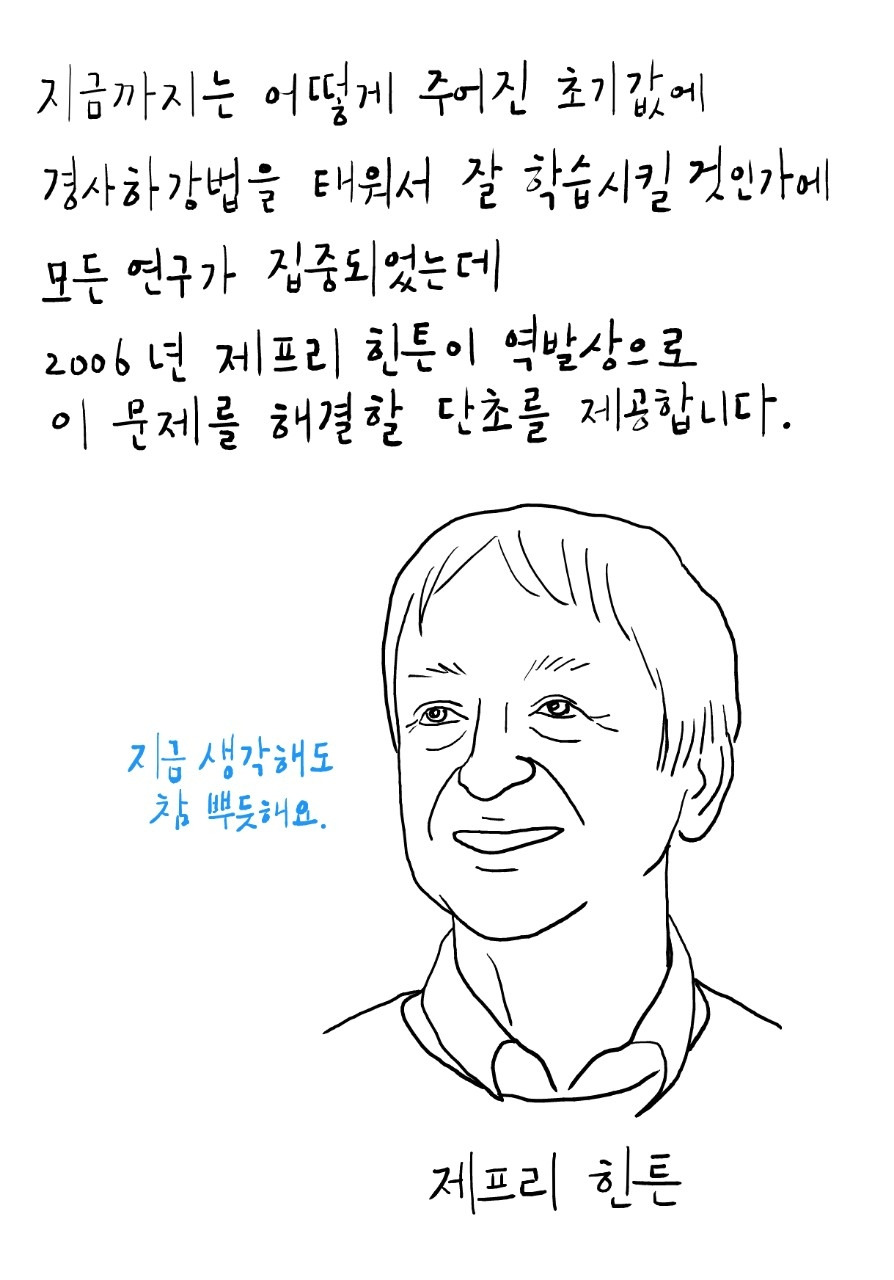 지금까지는 어떻게 주어진 초기값에
경사하강법을 태워서 잘 학습시킬 것인가에
모든 연구가 집중되었는데
2006년 제프리 힌튼이 역발상으로
이 문제를 해결할 단초를 제공합니다.
지금 생각해도
참 뿌듯해요.
제프리 힌튼